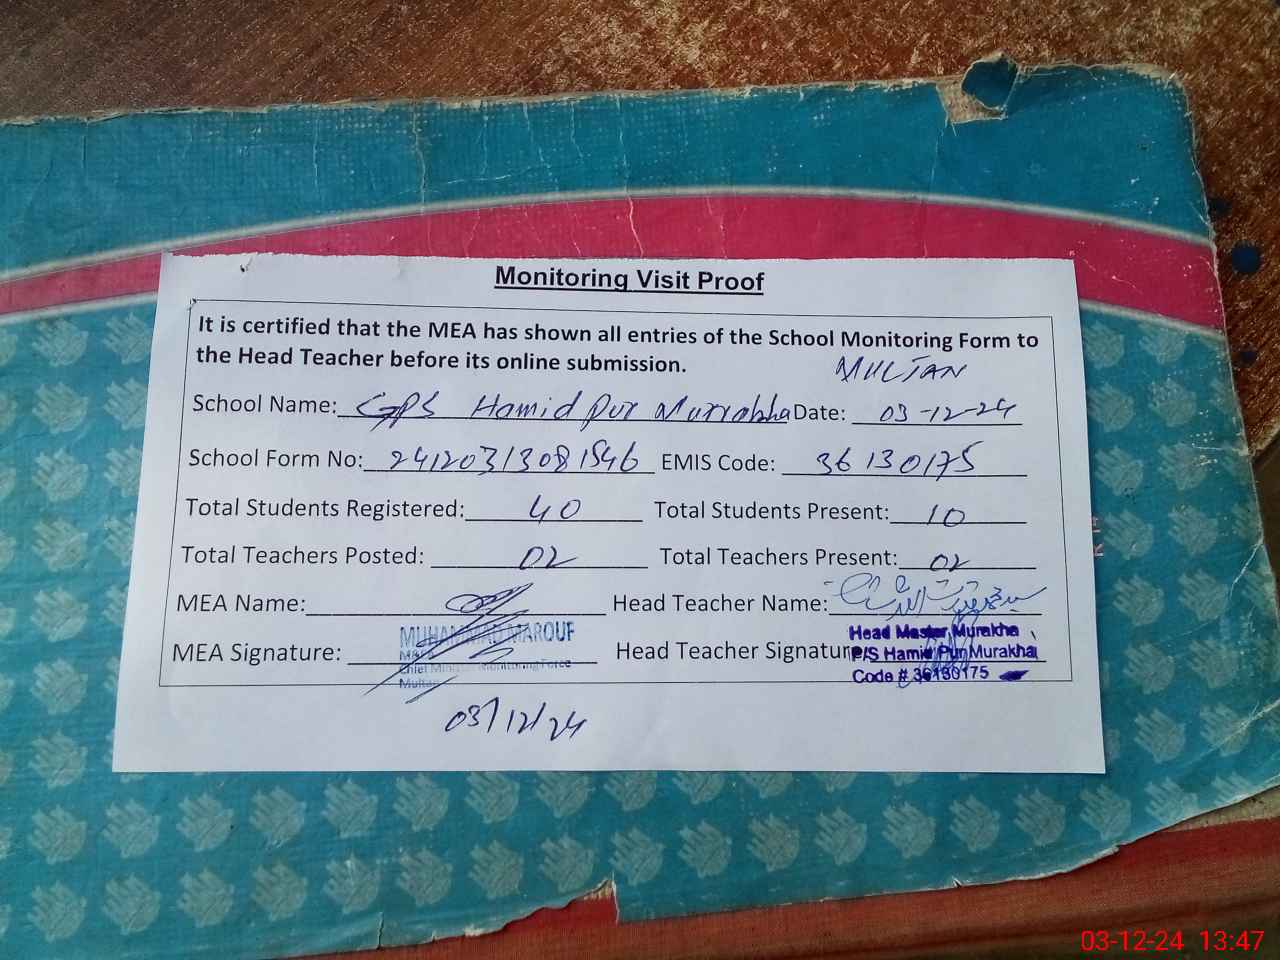 Monitoring Visit Proof
It is certified that the MEA has shown all entries of the School Monitoring Form to
the Head Teacher before its online submission.
MULTAN
School Name: GPS Hamid Pur Murrabha Date: 03-12-24
School Form No: 24120313081546 EMIS Code: 36130175
Total Students Registered: 40 Total Students Present: 10
Total Teachers Posted: 02 Total Teachers Present: 02
MEA Name: Head Teacher Name:
MUHAMMAD MAROUF
MEA Signature: Head Teacher Signature
Chief Monitoring Force
Multan
Head Master Murakha
P/S Hamid Pur Murakha
Code # 36130175
03/12/24
03-12-24 13:47